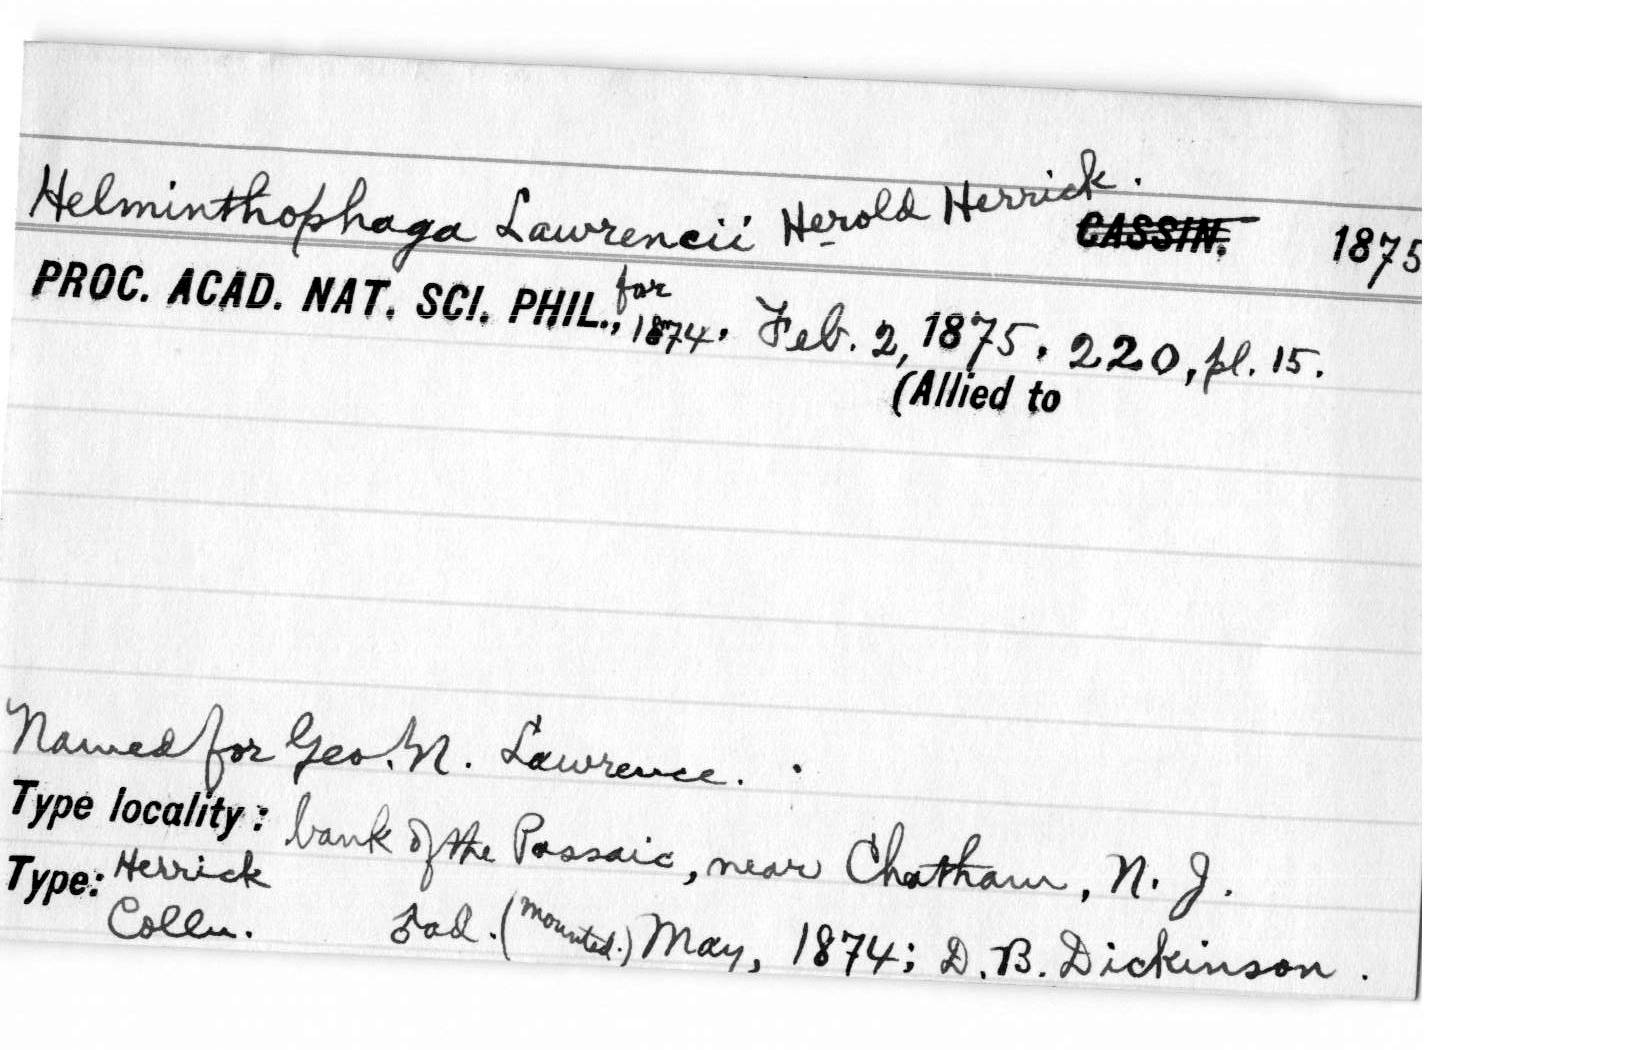 Helminthophaga Lawrencii Herold Herrick. CASSIN. 1875
PROC. ACAD. NAT. SCI. PHIL., for 1874. Feb. 2, 1875. 220, pl. 15.
(Allied to
Named for Geo. N. Lawrence.
Type locality: bank of the Passaic, near Chatham, N. J.
Type: Herrick
Colln. ad. (mounted.) May, 1874; D. B. Dickinson.